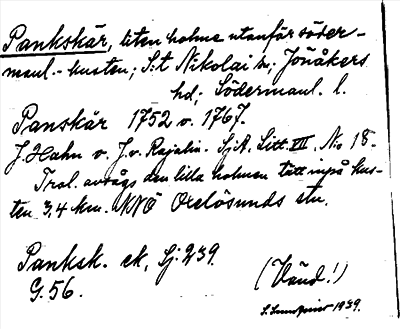 Pankskär, liten holme utanför söder-
manl.-kusten; S:t Nikolai sn; Jönåkers
hd; Södermanl. l.
Panskär 1752 o. 1767.
J. Hahn o. J. v. Rajalin. SjA. Litt. VII. No 18.
Trol. avsågs den lilla holmen tätt inpå kus-
ten 3,4 km. NNÖ Oxelösunds stn.
Panksk. ek, Sj. 239.
G. 56.
(Vänd!)
1939.